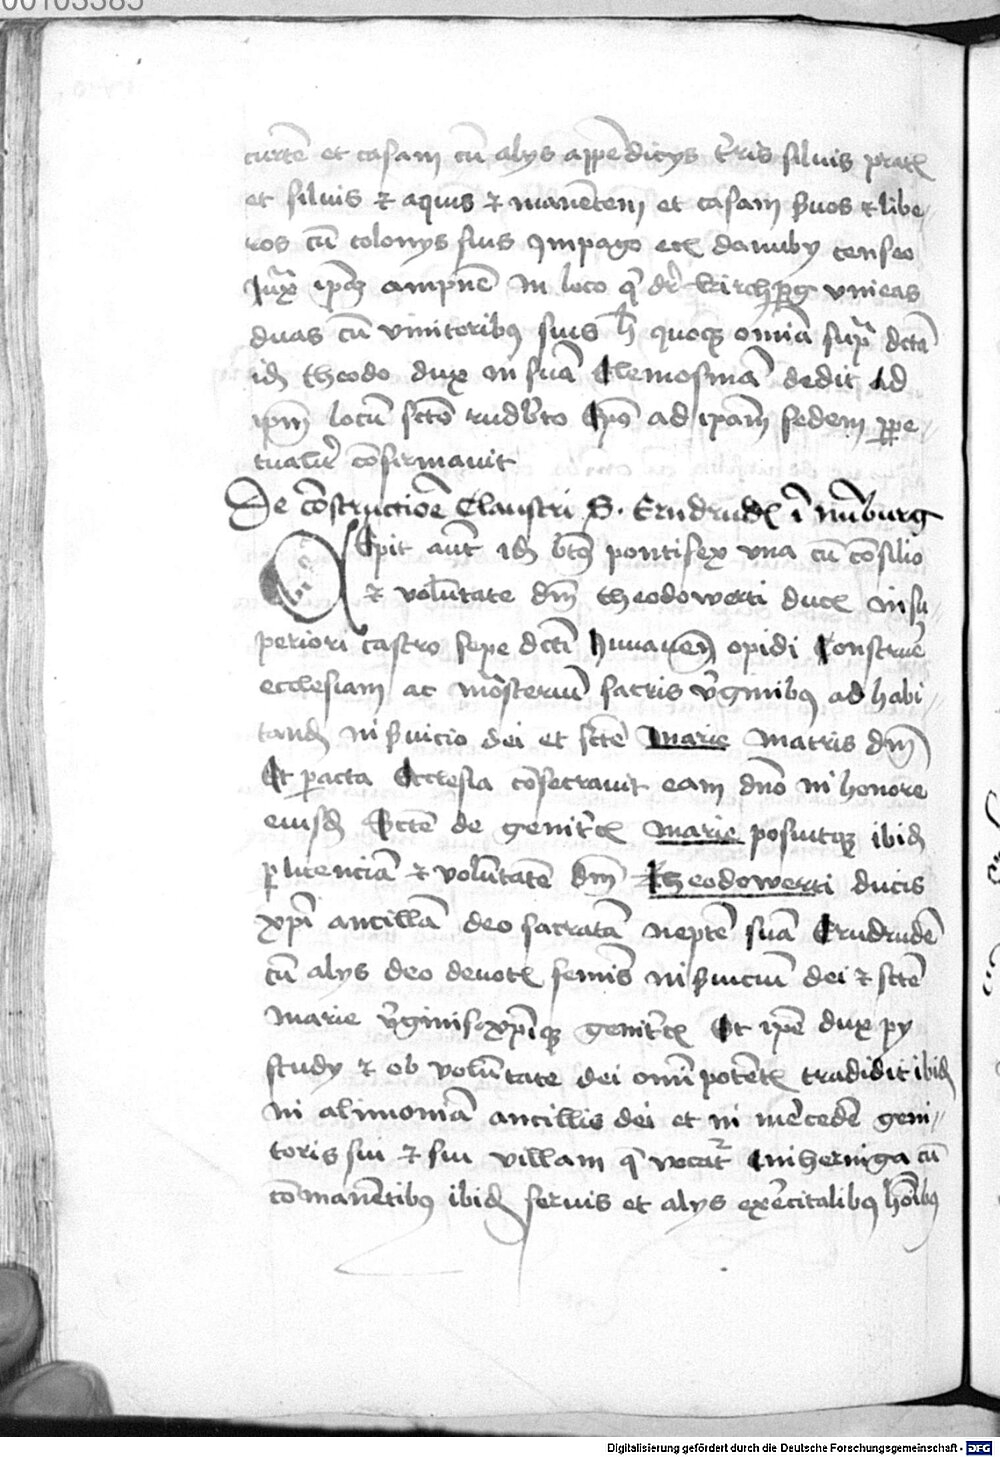 00103385
curtē et casam cū alys appēdicys t̄ris siluis prat
et siluis et aquis et manētem et casam s̄uos et libe
ros cū colonys suis Jmpago danuby censeo
in loco q̄ dr̄ vineas
duas cū vinitoribus suis quoque om̄ia sup̄ dcta
id theodo dux in suā Elemosinā dedit Ad
ip̄m locū sctō rudb̄to Ep̄o ad ip̄am sedem perpe
tualit̄ cōfirmauit
De cōstructiōe Claustri S. Erudrud ī nūburg
Cepit aut̄ id bt̄s pontifex vna cū cōsilio
et volūtate dm̄ theodowerti duc in su
periori castro sepe dcti Juuaueñ opidi Construe
ecclesiam ac mōsteriū sacris v̄ginibus ad habi
tand in s̄uicio dei et sctē marie matris dn̄
Et peracta Ecclesia cōsecrauit eam dn̄o in honore
eiusd Sctē de genit̄c marie posuitque ibid
per licenciā et volūtatē dm̄ Theodowerti ducis
xp̄i ancillā deo sacratā neptē suā Erudrudē
cū alys deo deuot femīs in s̄uiciū dei et sctē
Marie v̄ginis xp̄ique genit̄c Et ip̄e dux py
study et ob volūtate dei om̄ipotēt tradidit ibid
in alimoniā ancillis dei et in mēcedē geni
toris sui et sui villam q̄ vocat̄ Aniheringa cū
cōmanētibus ibid seruis et alys exērcitalibus hōibus
Digitalisierung gefördert durch die Deutsche Forschungsgemeinschaft - DFG